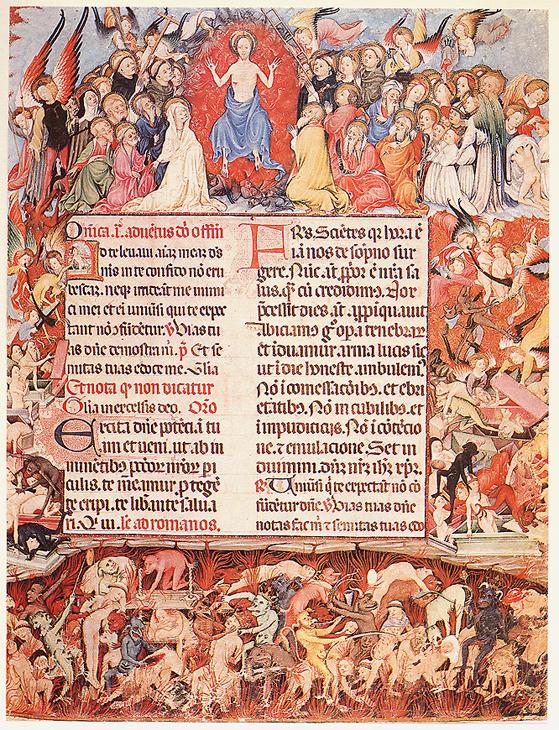 Dñica .i. aduẽtus dõ offiñ
Ad te leuaui aĩaz meaz dš
mš in te confido nõ eru
bescaz. neqȝ irrideãt me inimi
ci mei et eĩ uniũsi qui te expe
tant nõ cõfũdẽtur. ℣ Uias tu
as dñe demostra m̃. p̃ Et se
mitas tuas edoce me. Glia
Et nota qȝ non dicatur
Glia in excelsis deo. Orõ
Excita dñe potẽciã tu
am et ueni. ut ab in
minẽtibȝ pctõrȝ nrõrȝ pi
culis. te m̃eamur. ptegẽ
te eripi. te libante salua
ri. Q. ui. le ad romanos.
FRs. Sciẽtes qȝ hora ẽ
iã nos de sopno sur
gere. Nũc aũt ppor ẽ nrã sa
lus. qȝ cũ credidimȝ. Nox
pcessit dies aũt appĩquauit
abiciamȝ gº opã tenebraȝ
et iduamur. arma lucis sic
ut i die honeste. ambulemȝ.
Nõ i comessaciõibȝ. et ebri
etatibȝ. Nõ in cubilibȝ. et
impudiciis. Nõ i cõtẽcio
ne. et emulacione. Set in
duimini. dñm nrm ihm xpm.
℟. Uniũsi qui te expectãt nõ cõ
fũdẽtur dñe. ℣ Uias tuas dñe
notas fac m̃ et semitas tuas edo